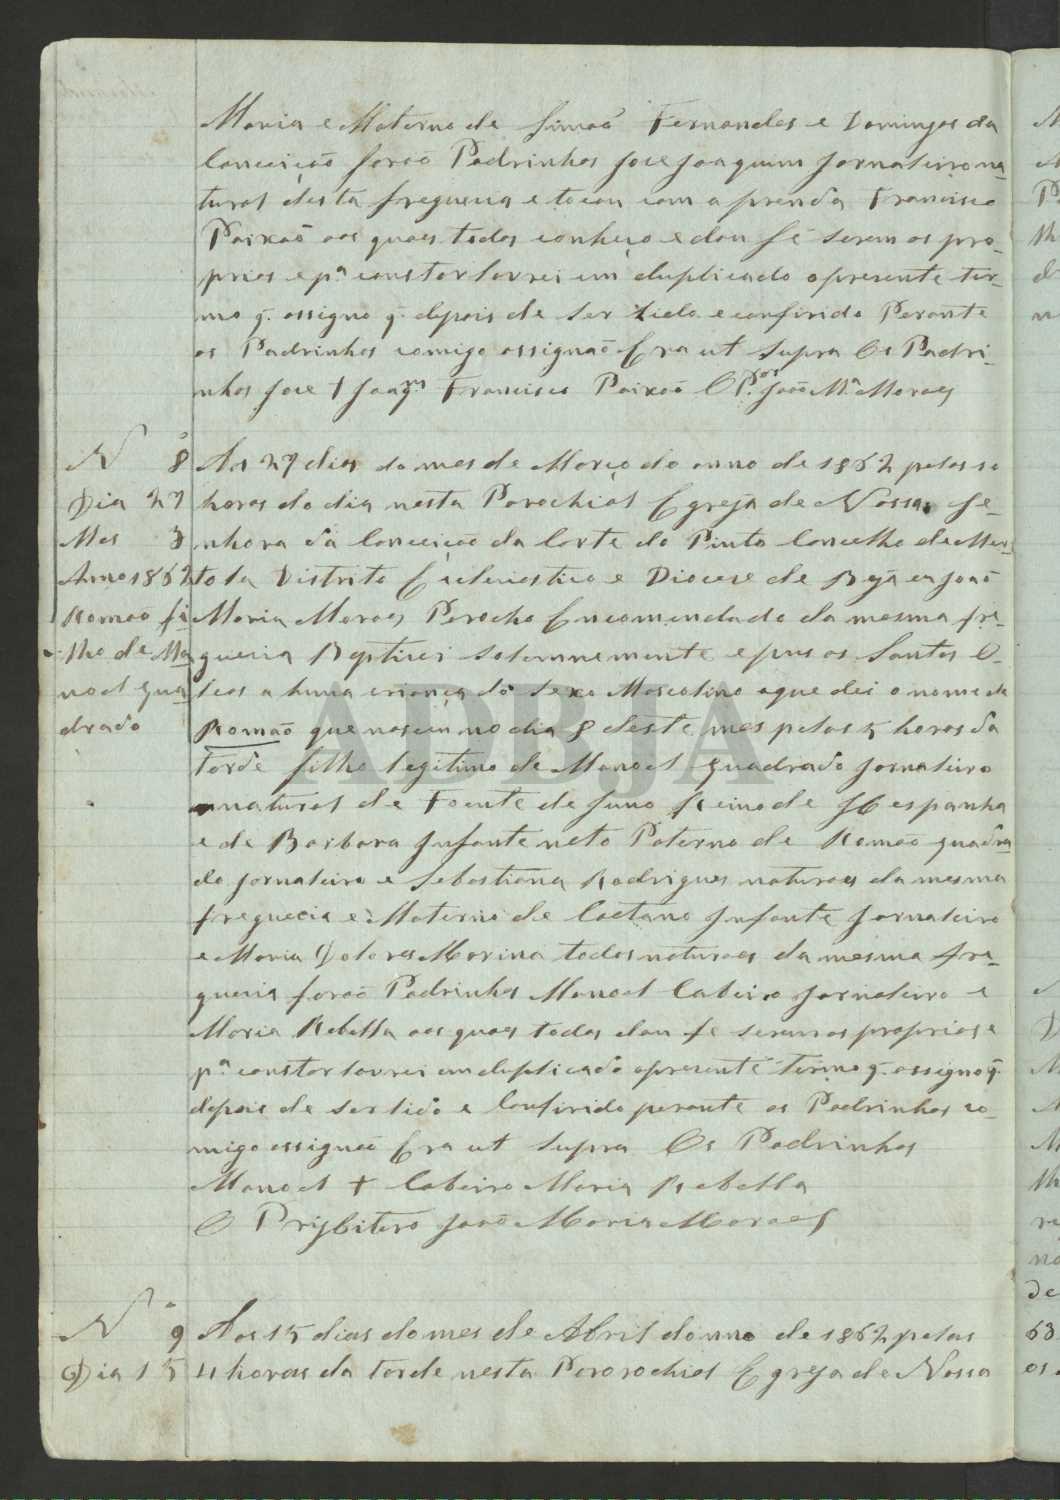 Maria e Materno de Simaõ Fernandes e Domingas da
Conceição foraõ Padrinhos Jose Joaquim Jornaleiro na
tural desta freguecia e tocou com a prenda Francisco
Paixaõ aos quaes todos conheço e dou fé serem os pro-
prios e pª constar lavrei em duplicado o presente ter-
mo q. assigno q. depois de ser lido e confirido Perante
os Padrinhos comigo assignaõ Era ut Supra Os Padri-
nhos Jose + Joaqm Francisco Paixaõ O Pe. João Mª Moraes
Nº 8
Dia 27
Mes 3
Anno 1862
Romaõ fi
lho de Ma
noel Gua
drado
Aos 27 dias do mes de Março do anno de 1862 pelas 10
horas do dia nesta Parochial Egreja de Nossa Se-
nhora da Conceição da Corte do Pinto Concelho de Mer-
tola Distrito Ecleciastico e Diocese de Beja eu João
Maria Moraes Parocho Encomendado da mesma fre-
guecia Baptizei Solemnemente e pus os Santos O-
leos a huma criança do Sexo Mascolino a que dei o nome de
Romaõ que nasceu no dia 8 deste mes pelas 5 horas da
tarde filho legitimo de Manoel Guadrado Jornaleiro
natural de Foente de Juno Reino de Hespanha
e de Barbara Infante neto Paterno de Romaõ Guadra
do Jornaleiro e Sebastiana Rodrigues naturaes da mesma
freguecia e Materno de Caetano Infante Jornaleiro
e Maria Dolores Marina todos naturaes da mesma fre-
guecia foraõ Padrinhos Manoel Cabeiro Jornaleiro e
Maria Rebella aos quaes todos dou fé serem os proprios e
pª constar lavrei em duplicado o presente termo q. assigno q.
depois de ser lido e Confirido perante os Padrinhos co-
migo assignaõ Era ut Supra Os Padrinhos
Manoel + Cabeiro Maria Rebella
O Prisbitero João Maria Moraes
Nº 9
Dia 15
Aos 15 dias do mes de Abril do nno de 1862 pelas
4 horas da tarde nesta Pororochial Egreja de Nossa
ADBJA